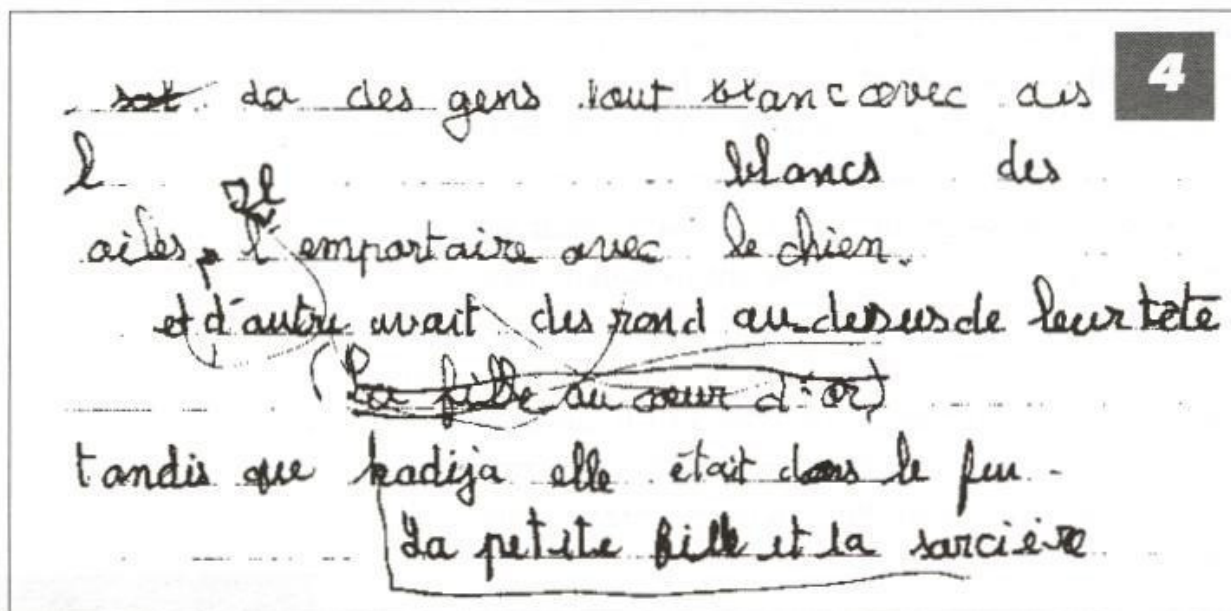 4
da des gens tout blanc avec des
l blancs des
Il
ailes, l'emportaire avec le chien.
et d'autre avait des rond au-dessus de leur tête
La fille au cœur d'or)
tandis que kadija elle était dans le feu.
La petite fille et la sarcière